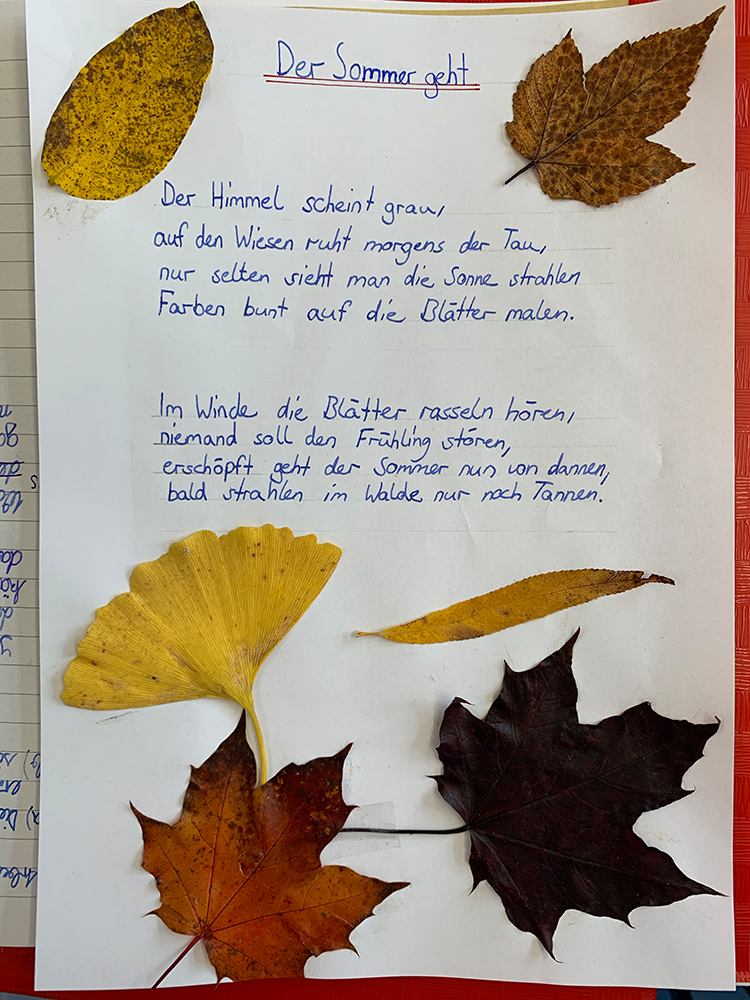 Der Sommer geht
Der Himmel scheint grau,
auf den Wiesen ruht morgens der Tau,
nur selten sieht man die Sonne strahlen
Farben bunt auf die Blätter malen.
Im Winde die Blätter rasseln hören,
niemand soll den Frühling stören,
erschöpft geht der Sommer nun von dannen,
bald strahlen im Walde nur noch Tannen.